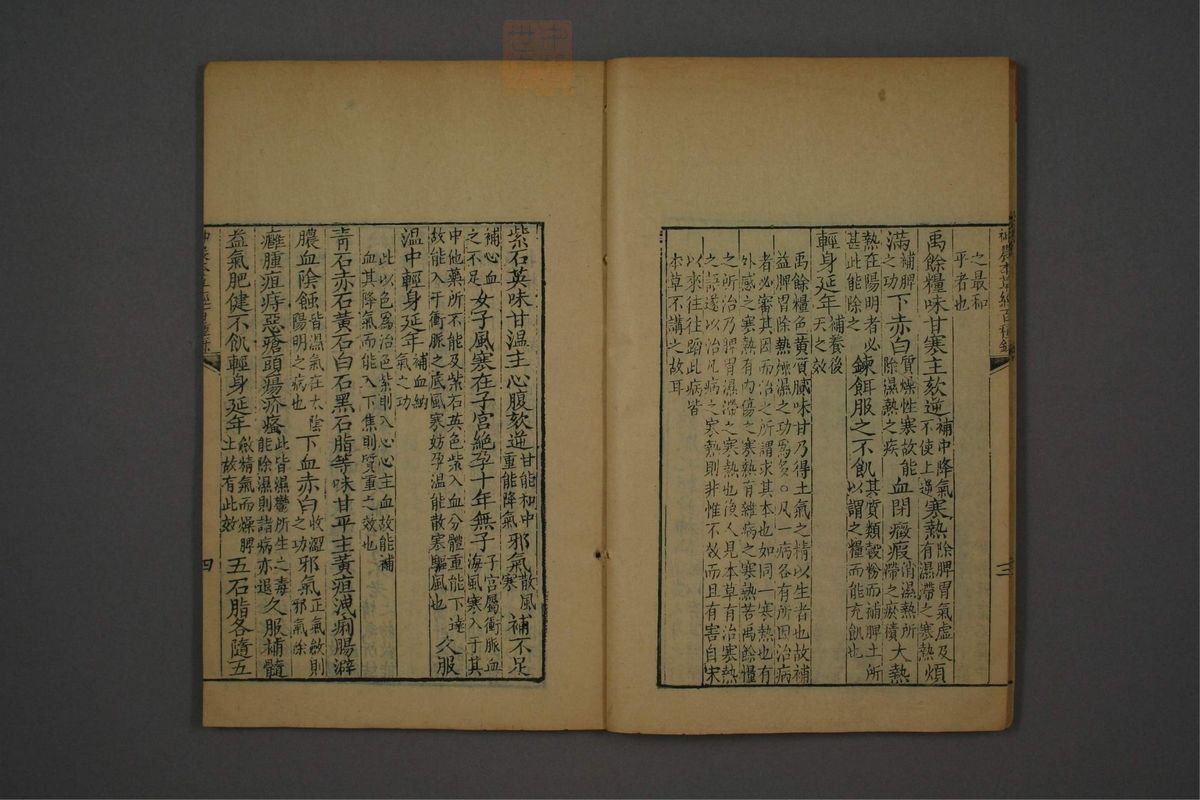 神農本草經百種錄
之最和
平者也
禹餘糧味甘寒主欬逆補中降氣不使上逆寒熱除脾胃氣虛及有濕滯之寒熱煩
滿補脾之功下赤白質燥性寒故能除濕熱之疾血閉癥瘕消濕熱所滯之瘀積大熱
熱在陽明者必甚此能除之鍊餌服之不飢其質類穀粉而補脾土所以謂之糧而能充飢也
輕身延年補養後天之效
禹餘糧色黃質膩味甘乃得土氣之精以生者也故補
益脾胃除熱燥濕之功爲多○凡一病各有所因治病
者必審其因而治之所謂求其本也如同一寒熱也有
外感之寒熱有內傷之寒熱有雜病之寒熱若禹餘糧
之所治乃脾胃濕滯之寒熱也後人見本草有治寒熱
之語遂以治凡病之寒熱則非惟不效而且有害自宋
以來往往蹈此病皆
本草不講之故耳
三
紫石英味甘溫主心腹欬逆甘能和中重能降氣邪氣散風寒補不足
補心血之不足女子風寒在子宮絕孕十年無子子宮屬衝脈血海風寒入于其
中他藥所不能及紫石英色紫入血分體重能下達故能入于衝脈之底風寒妨孕溫能散寒驅風也久服
溫中輕身延年補血納氣之功
此以色爲治色紫則入心心主血故能補
血其降氣而能入下焦則質重之效也
青石赤石黃石白石黑石脂等味甘平主黃疸洩痢腸澼
膿血陰蝕皆濕氣在太陰陽明之病也下血赤白收澀之功邪氣正氣斂則邪氣除
癰腫疽痔惡瘡頭瘍疥瘙此皆濕鬱所生之毒能除濕則諸病亦退久服補髓
益氣肥健不飢輕身延年斂精氣而燥脾土故有此效五石脂各隨五
四